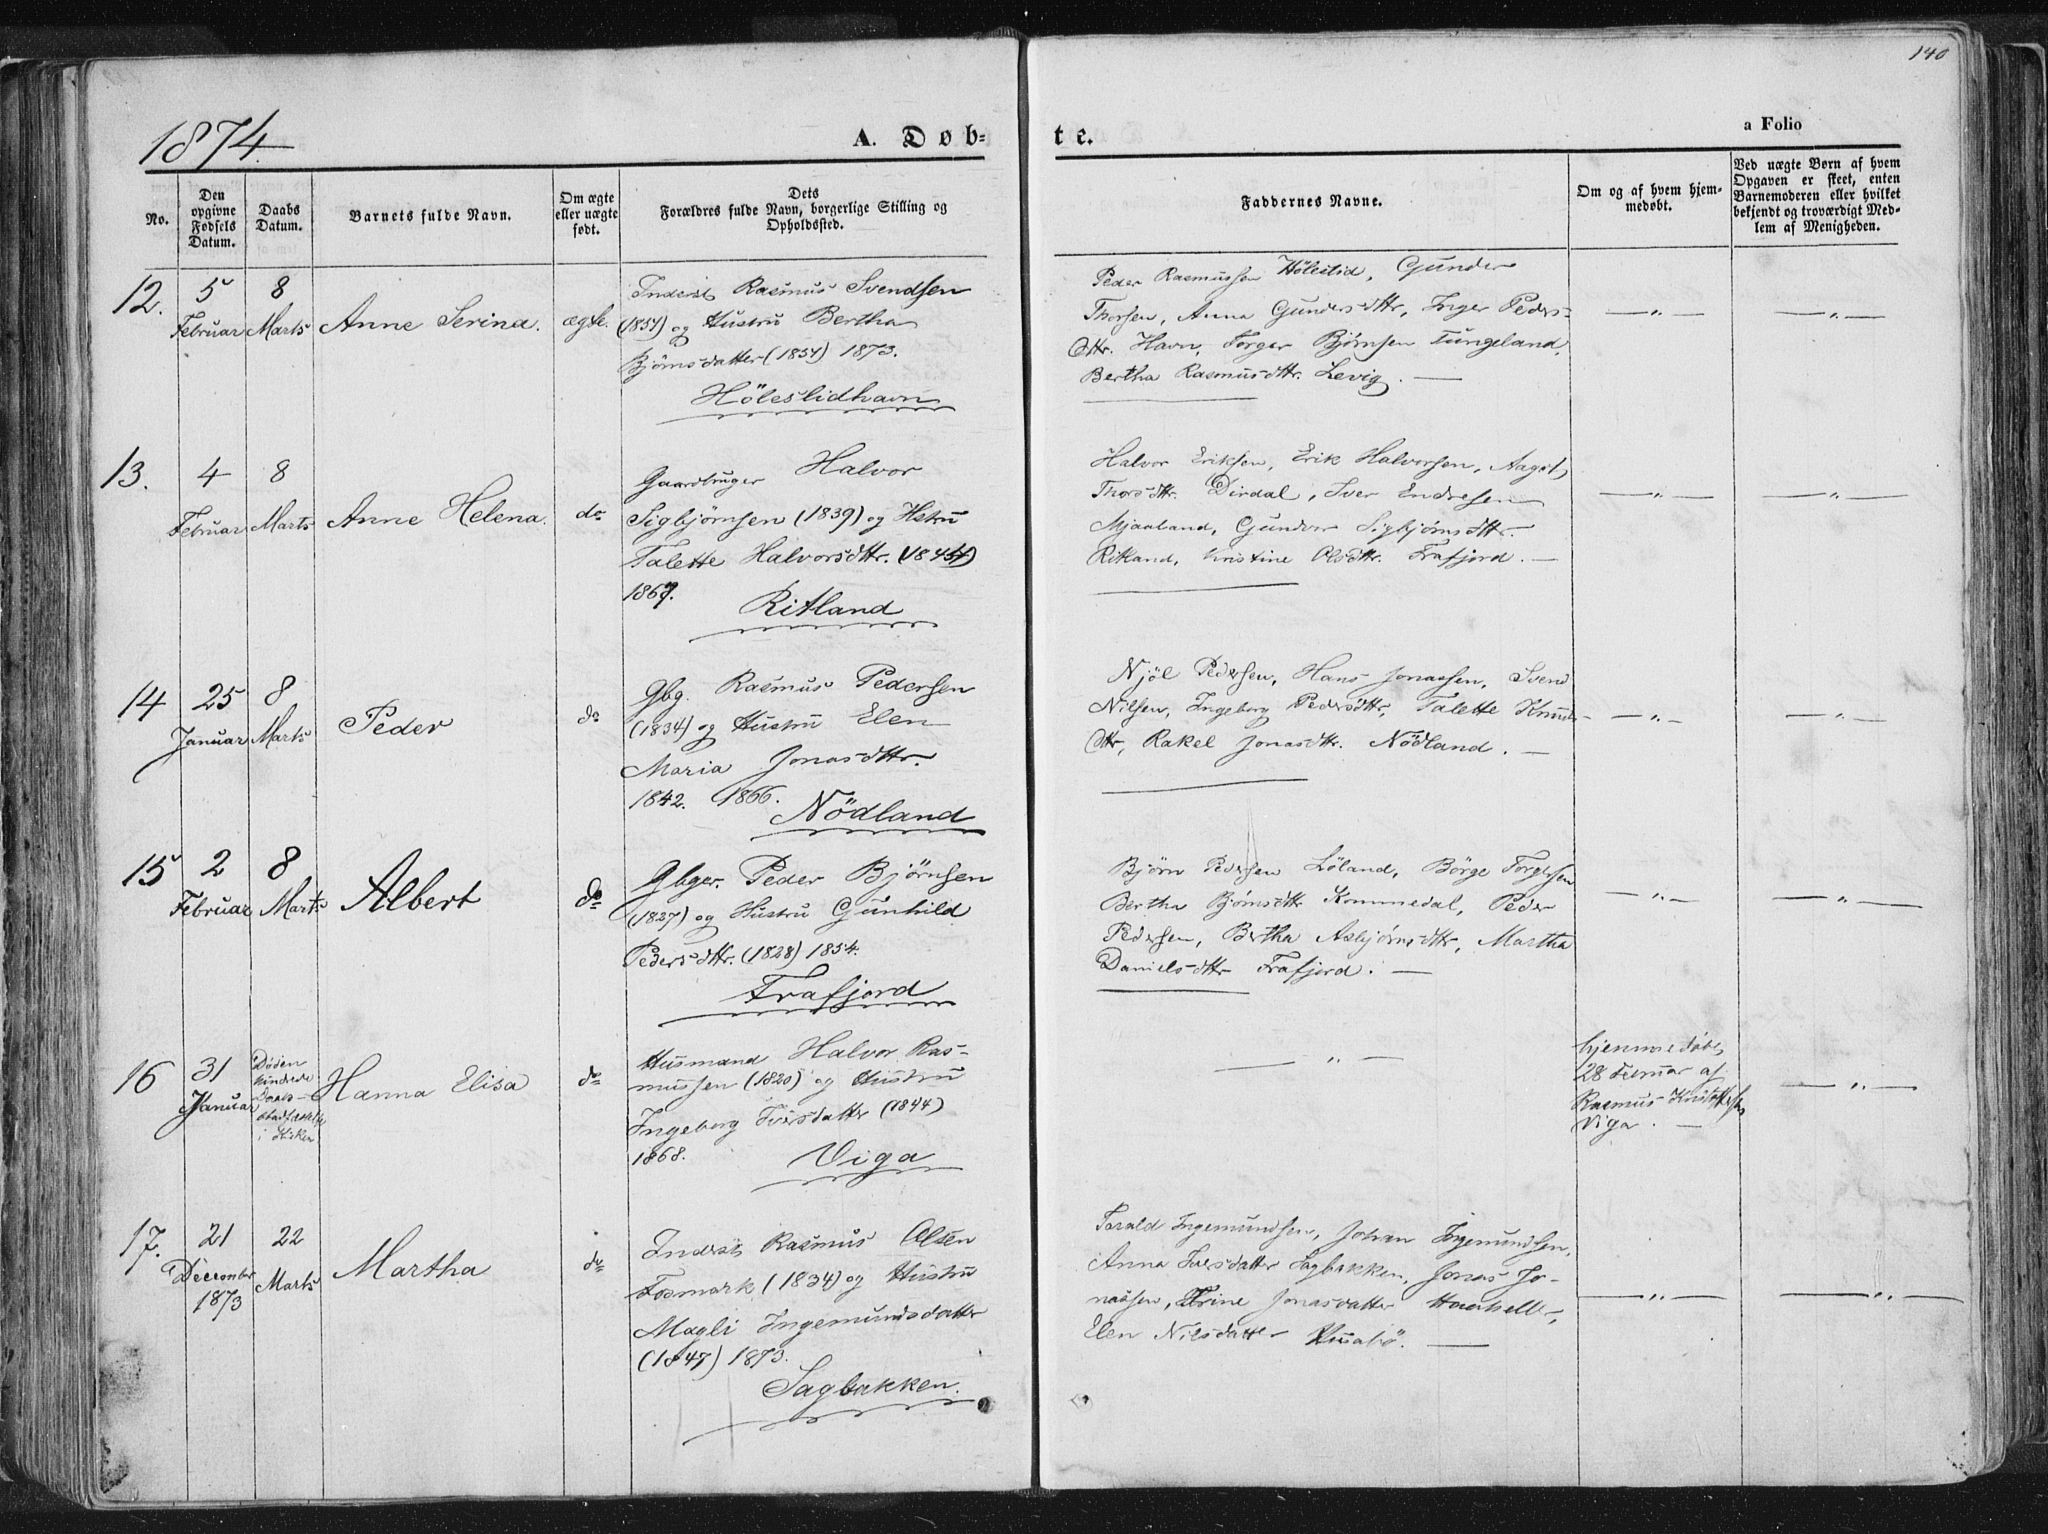 140
1874.
A. Døb-
te.
a Folio
No.
Den
opgivne
Fødsels
Datum.
Daabs
Datum.
Barnets fulde Navn.
Om ægte
eller uægte
født.
Dets
Forældres fulde Navn, borgerlige Stilling og
Opholdssted.
Faddernes Navne.
Om og af hvem hjem-
medøbt.
Ved uægte Børn af hvem
Opgaven er skeet, enten
Barnemoderen eller hvilket
bekjendt og troværdigt Med-
lem af Menigheden.
12.
5
Februar
8
Marts
Anne Serina.
ægte.
Inderst Rasmus Svendsen
(1851) og Hustru Bertha
Bjørnsdatter (1854) 1873.
Höleslidhavn
Peder Rasmussen Höleslid, Gunder
Thorsen, Anna Gundersdttr, Inger Peders-
dttr. Havn, Torger Bjørnsen Tungeland,
Bertha Rasmusdttr. Levig. —
— " —
— " —
13.
4
Februar
8
Marts
Anne Helena.
do
Gaardbruger Halvor
Sigbjørnsen (1839) og Hstru
Talette Halvorsdttr. (1844)
1867.
Ritland
Halvor Eriksen, Erik Halvorsen, Aagot
Thorsdttr. Dirdal, Iver Endresen
Mjaaland, Gundvor Sigbjørnsdttr.
Ritland, Kristine Olsdttr. Frafjord. —
— " —
— " —
14
25
Januar
8
Marts
Peder
do
Gbg. Rasmus Pedersen
(1834) og Hustru Elen
Maria Jonasdttr.
1842. 1866.
Nödland
Njöl Pedersen, Hans Jonassen, Svend
Nilsen, Ingeborg Pedersdttr, Talette Knuds-
dttr, Rakel Jonasdttr. Nödland. —
— " —
— " —
15
2
Februar
8
Marts
Albert
do
Gbger. Peder Bjørnsen
(1827) og Hustru Gunhild
Pedersdttr. (1828) 1854.
Frafjord
Bjørn Pedersen Löland, Börge Torgersen
Bertha Bjørnsdttr Kommedal, Peder
Pedersen, Bertha Asbjørnsdttr, Martha
Danielsdttr Frafjord. —
— " —
— " —
16
31
Januar
Døden
hindrede
Daabs-
stadfæstelse
i Kirken
Hanna Elisa
do
Husmand Halvor Ras-
mussen (1820) og Hustru
Ingeborg Iversdatter (1844)
1868.
Viga
— " —
hjemmedøbt
28 Februar af
Rasmus
Viga. —
— " —
17.
21
December
1873
22
Marts
Martha
do
Inderst Rasmus Olsen
Fosmark (1834) og Hustru
Magli Ingemundsdatter
(1847) 1873.
Sagbakken.
Tarald Ingemundsen, Johan Ingemundsen,
Anna Iversdatter Sagbakken, Jonas Jo-
nassen, Trine Jonasdatter
Elen Nilsdatter —
— " —
— " —